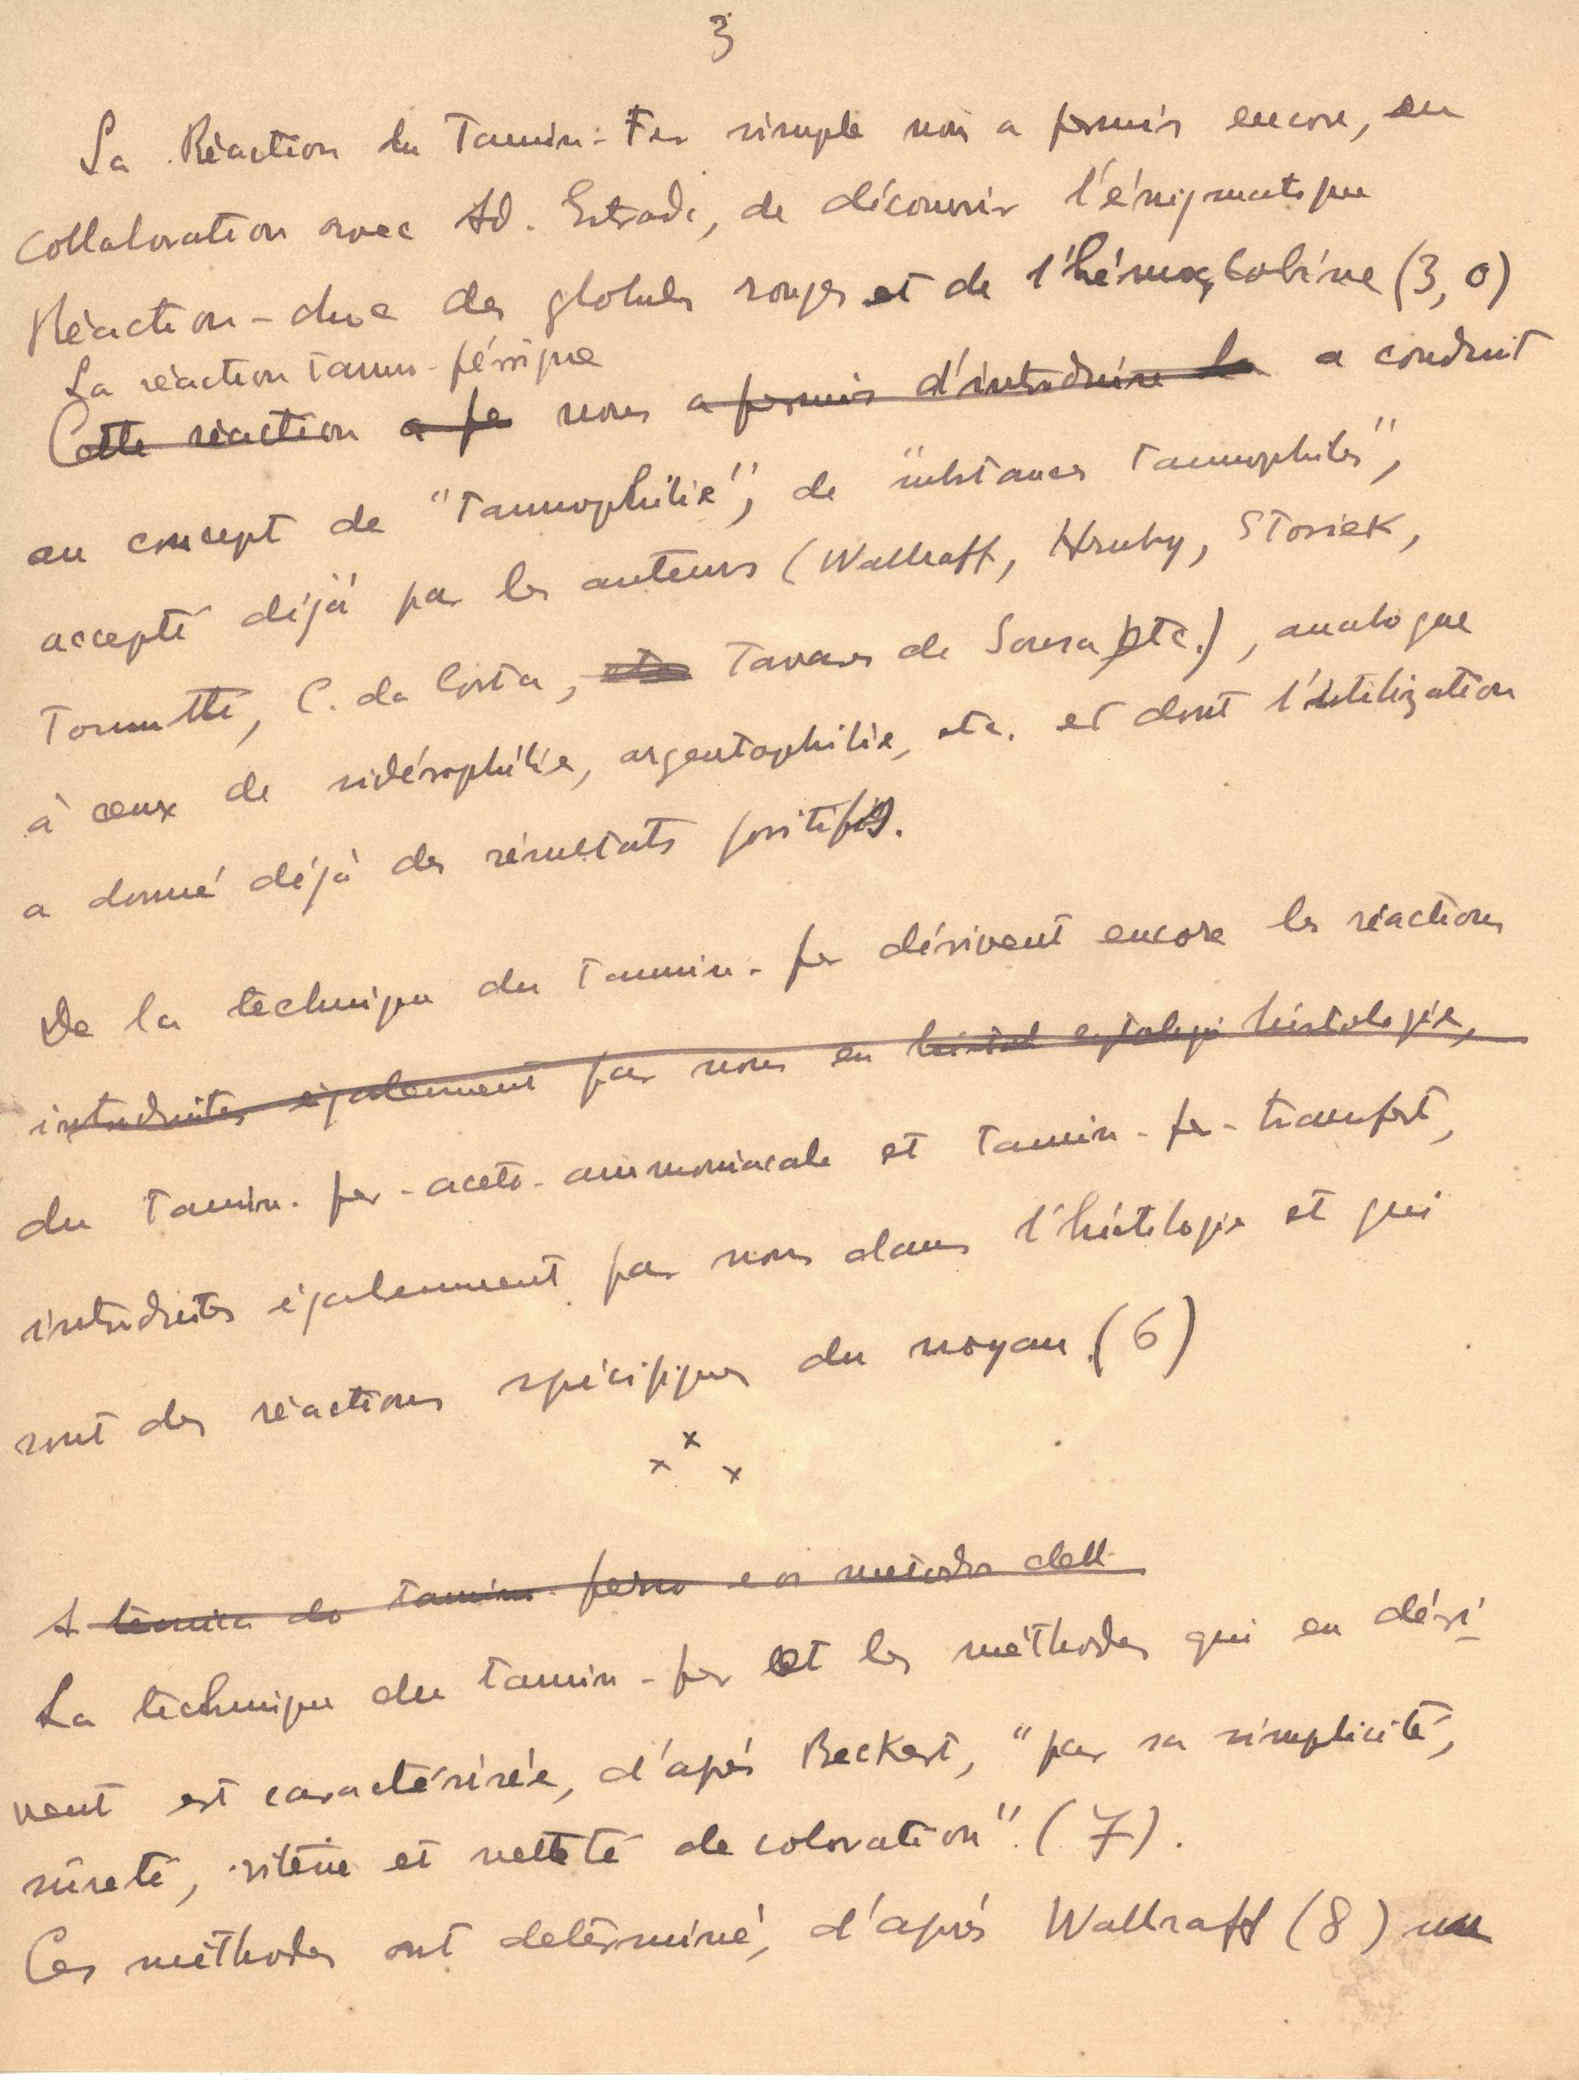 3
La Réaction du Tannin-Fer simple nous a permis encore, en
collaboration avec Ad. Estrada, de découvrir l'énigmatique
Réaction-duc des globules rouges et de l'hémoglobine (3, 0)
La réaction tanno-férrique
Cette réaction a pe nous a permis d'introduire la a conduit
au concept de "tannophilie", de "substances tannophiles",
accepté déjà par les auteurs (Wallraff, Hruby, Storiek,
C. da Costa, etc Tavares de Sousa etc.), analogue
à ceux de sidérophilie, argentophilie, etc. et dont l'utilization
a donné déjà des résultats positifs.
De la technique du tannin-fer dérivent encore les réactions
introduites également par nous en histol cytologie histologie,
du tannin-fer-aceto-ammoniacale et tannin-fer-transfert,
introduites également par nous dans l'histologie et qui
sont des réactions spécifiques du noyau (6)
x x x
A técnica do tanino-ferro e os metodos dell
La technique du tannin-fer et les méthodes qui en déri-
vent est caractérisée, d'après Beckert, "par sa simplicité,
sûreté, et netteté de coloration" (7).
Ces méthodes ont determiné, d'après Wallraff (8) un